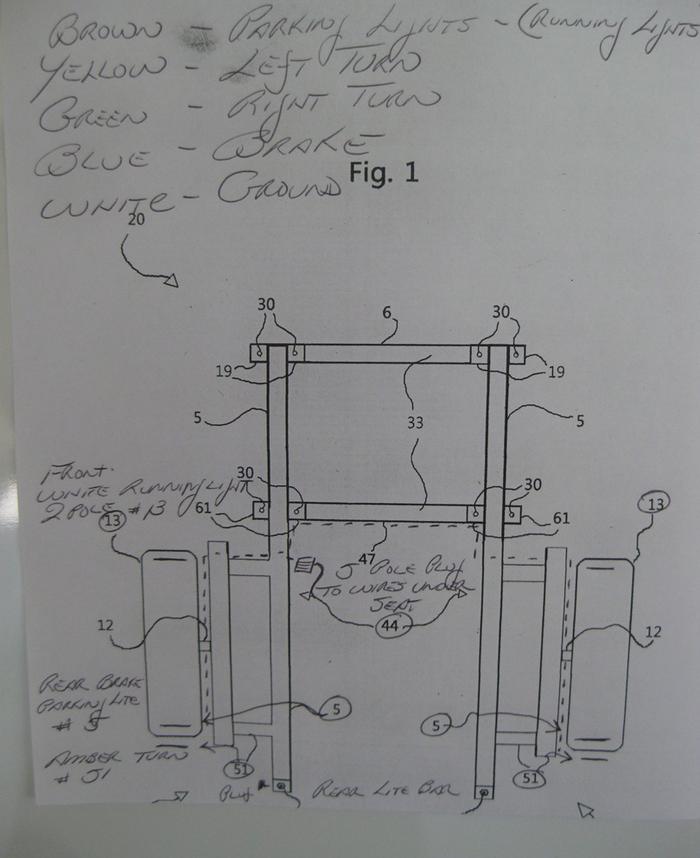 BROWN - PARKING LIGHTS - (RUNNING LIGHTS
YELLOW - LEFT TURN
GREEN - RIGHT TURN
BLUE - BRAKE
Fig. 1
WHITE - GROUND
20
30 6 30
19 19
5 33 5
FRONT
WHITE RUNNING LIGHT
2 POLE # 13
30 30
61 61
13 13
47
5 POLE PLUG
TO WIRES UNDER
SEAT
44
12 12
REAR BRAKE
PARKING LITE
# 5
5 5
AMBER TURN
# 51
51 51
PLUG REAR LITE BAR